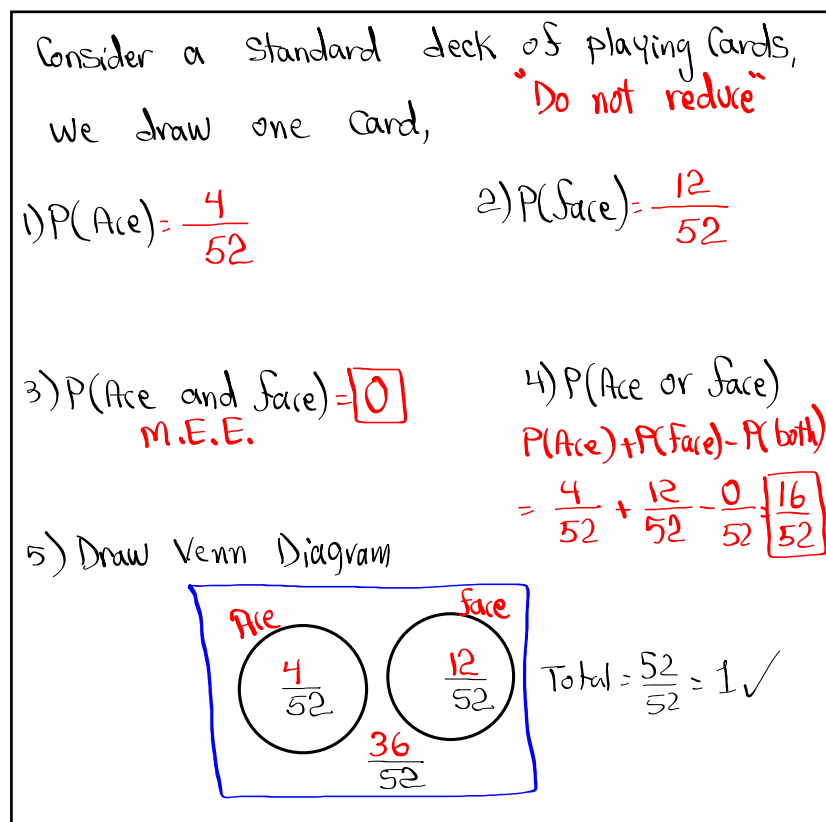 Consider a standard deck of playing cards,
"Do not reduce"
we draw one card,
1) P(Ace) = 4/52
2) P(face) = 12/52
3) P(Ace and face) = 0
M.E.E.
4) P(Ace or face)
P(Ace) + P(face) - P(both)
= 4/52 + 12/52 - 0/52 = 16/52
5) Draw Venn Diagram
Ace
face
4/52
12/52
36/52
Total = 52/52 = 1 ✓